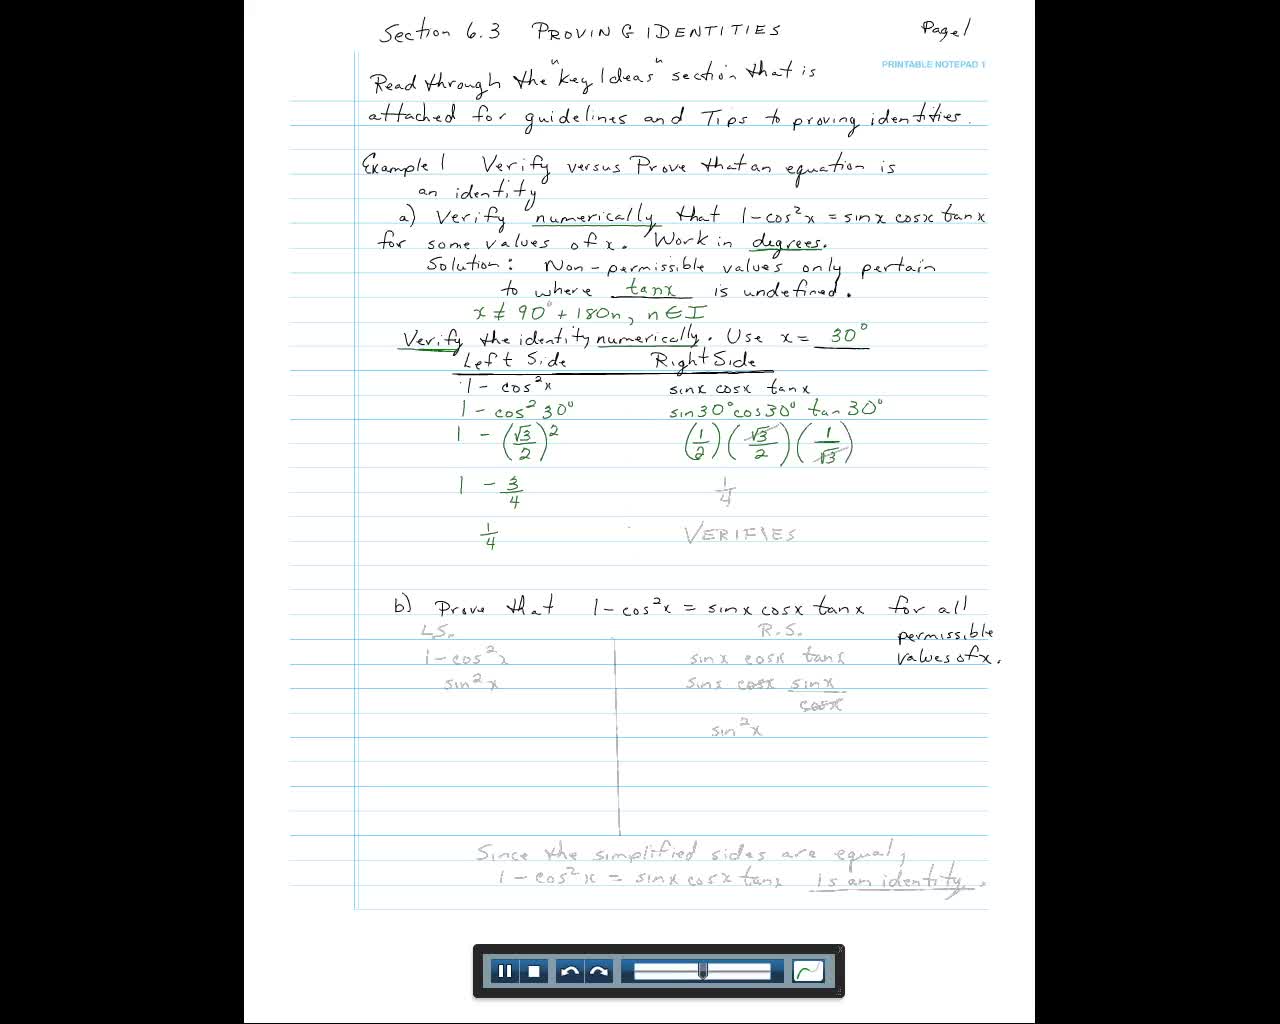 Section 6.3 PROVING IDENTITIES Page 1
PRINTABLE NOTEPAD 1
Read through the "Key Ideas" section that is
attached for guidelines and Tips to proving identities.
Example 1 Verify versus Prove that an equation is
an identity
a) Verify numerically that 1-cos²x = sinx cosx tanx
for some values of x. Work in degrees.
Solution: Non-permissible values only pertain
to where tanx is undefined.
x ≠ 90° + 180n, n ∈ I
Verify the identity numerically. Use x = 30°
Left Side Right Side
1 - cos²x sinx cosx tanx
1 - cos² 30° sin30° cos30° tan30°
1 - (√3/2)² (1/2)(√3/2)(1/√3)
1 - 3/4 1/4
1/4 VERIFIES
b) Prove that 1-cos²x = sinx cosx tanx for all
permissible
values of x.
L.S. R.S.
1-cos²x sinx cosx tanx
sin²x sinx cosx sinx/cosx
sin²x
Since the simplified sides are equal,
1-cos²x = sinx cosx tanx is an identity.